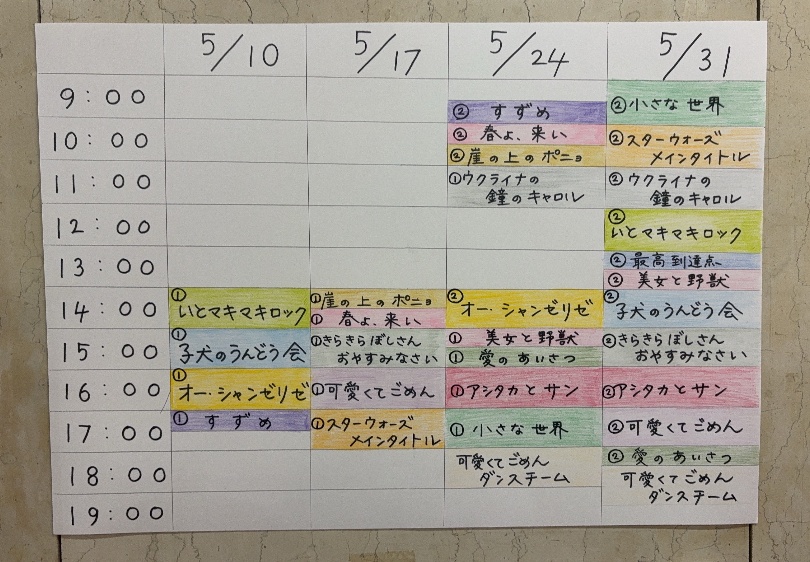 5/10 5/17 5/24 5/31
9:00 ②すずめ ②小さな世界
10:00 ②春よ、来い ②スターウォーズ
②崖の上のポニョ メインタイトル
11:00 ①ウクライナの ②ウクライナの
鐘のキャロル 鐘のキャロル
12:00 ②いとマキマキロック
13:00 ②最高到達点
②美女と野獣
14:00 ①いとマキマキロック ①崖の上のポニョ ②オー・シャンゼリゼ ②子犬のうんどう会
①春よ、来い
15:00 ①子犬のうんどう会 ①きらきらぼしさん ①美女と野獣 ②きらきらぼしさん
おやすみなさい ①愛のあいさつ おやすみなさい
16:00 ①オー・シャンゼリゼ ①可愛くてごめん ①アシタカとサン ②アシタカとサン
17:00 ①すずめ ①スターウォーズ ①小さな世界 ②可愛くてごめん
メインタイトル
18:00 可愛くてごめん ②愛のあいさつ
ダンスチーム 可愛くてごめん
ダンスチーム
19:00